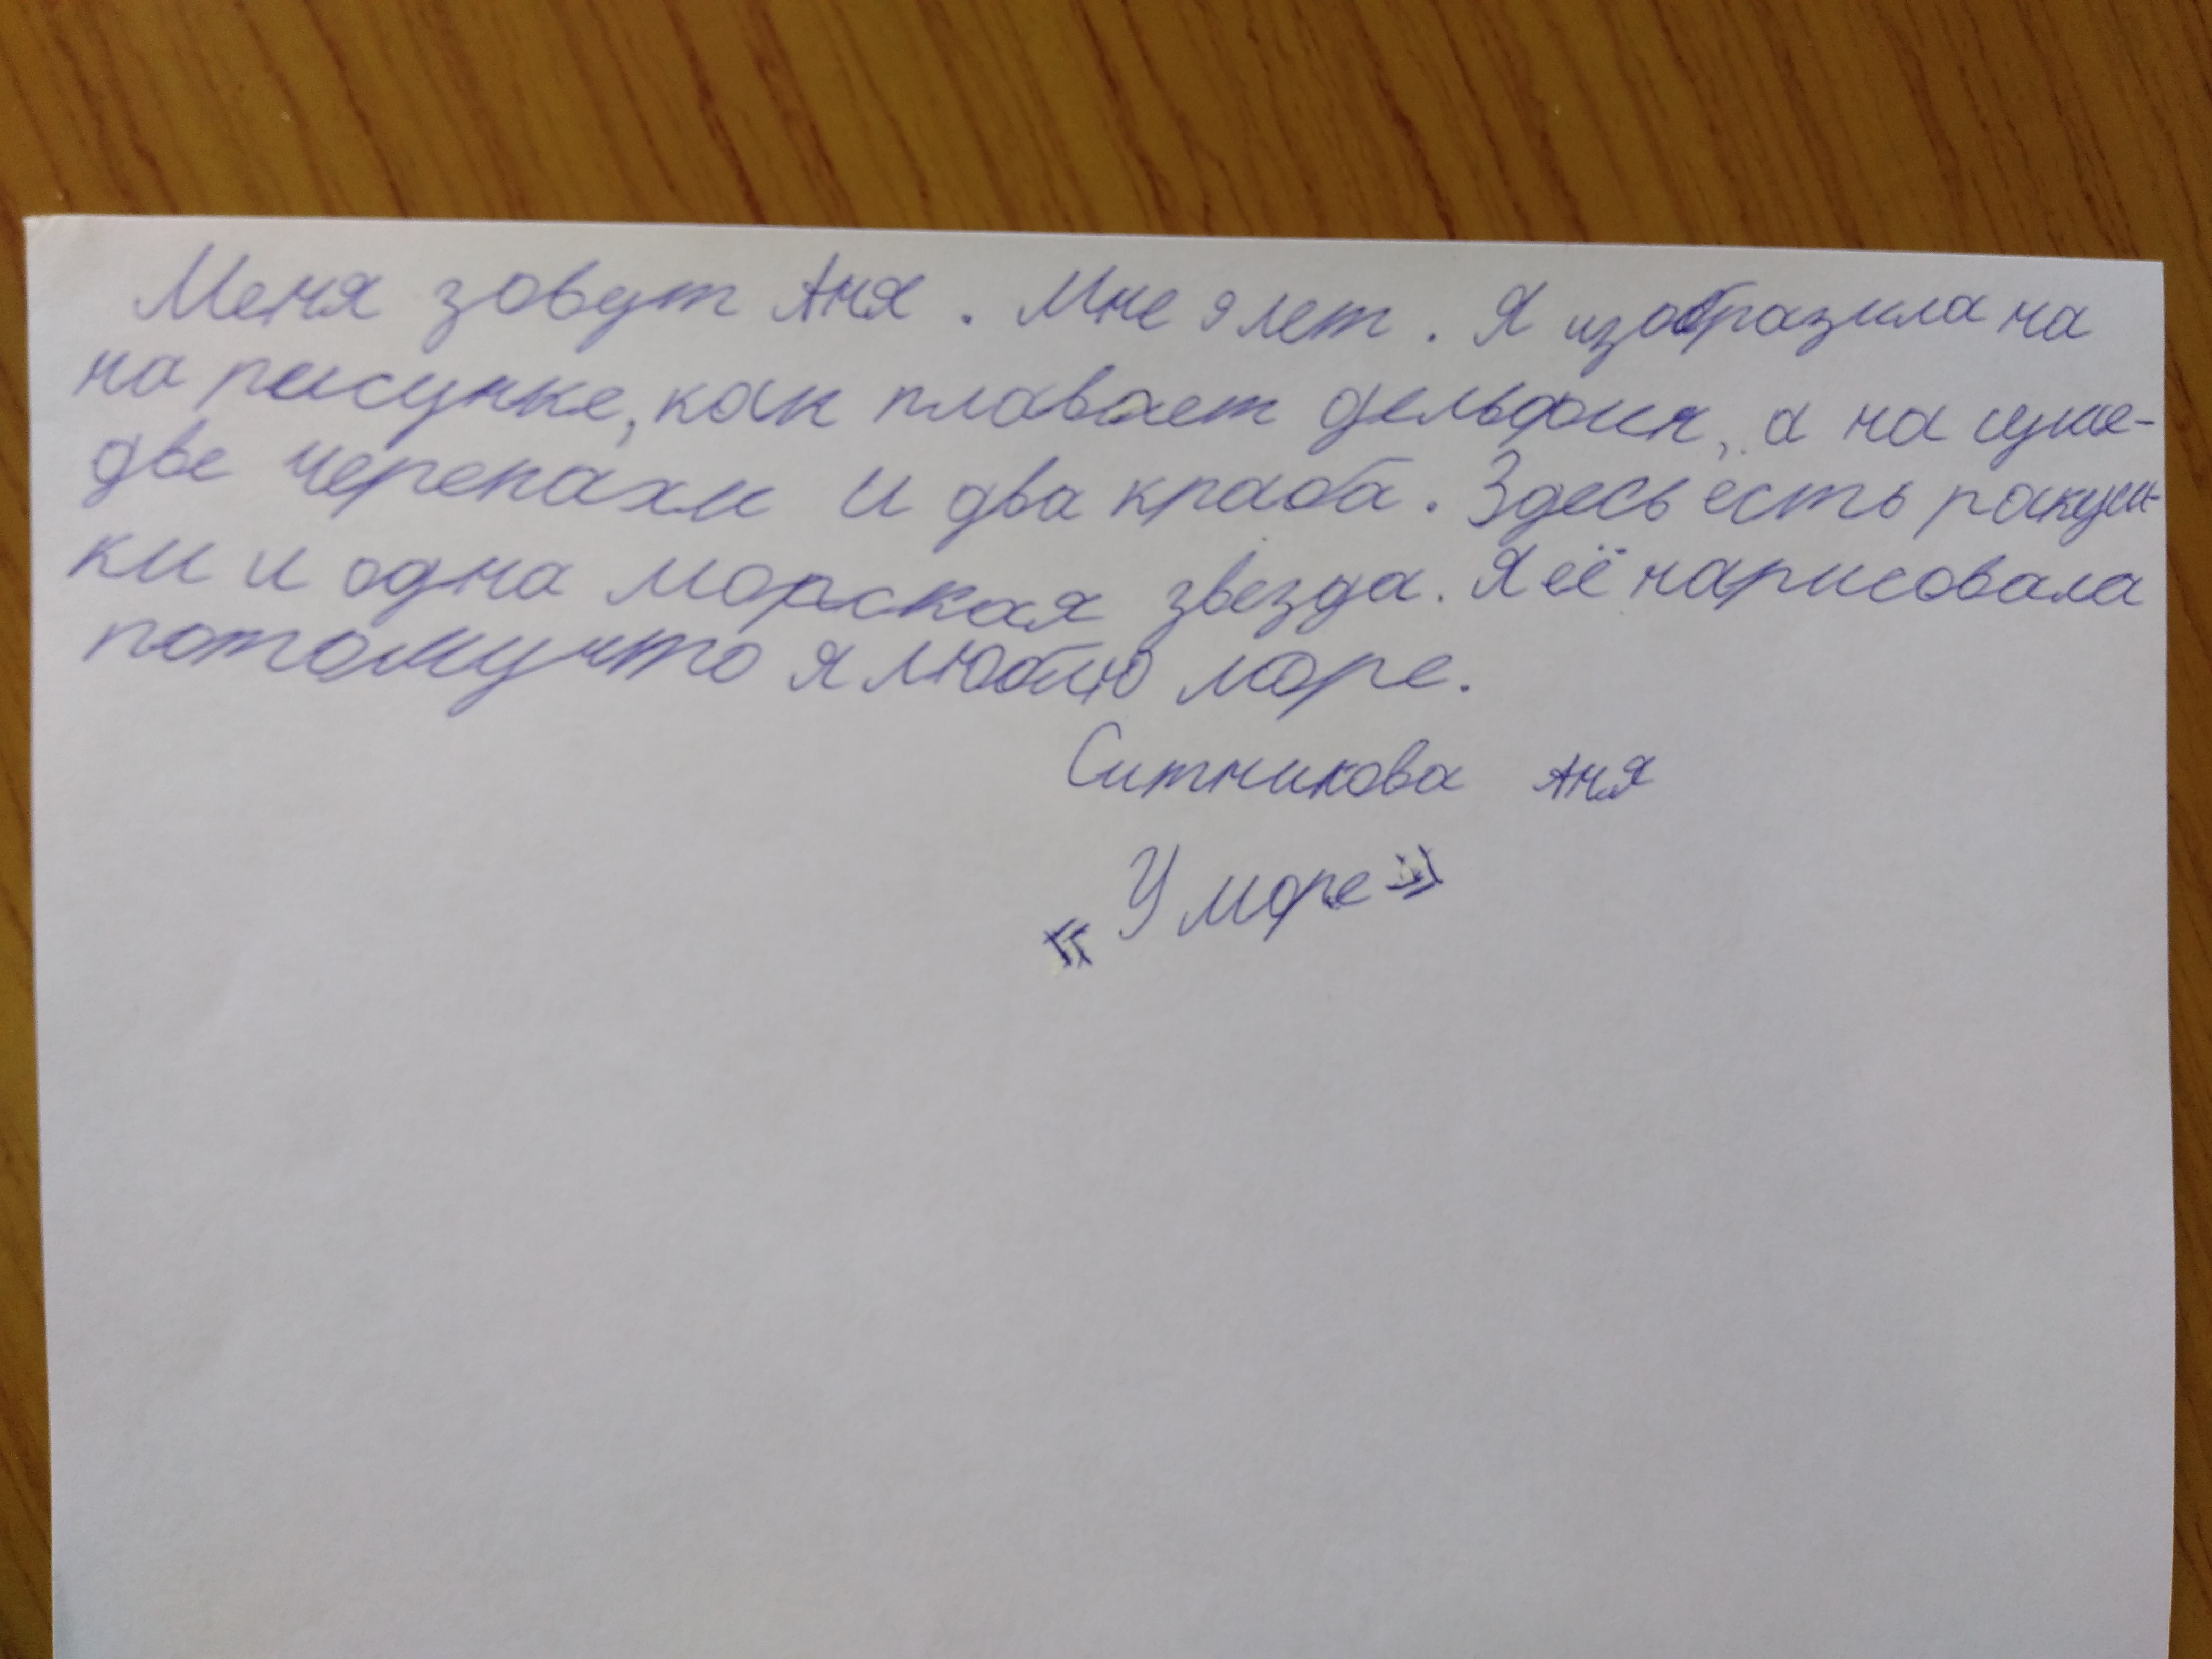 Меня зовут Аня. Мне 9 лет. Я изобразила на
на рисунке, как плавает дельфин, а на суше-
две черепахи и два краба. Здесь есть ракуш-
ки и одна морская звезда. Я её нарисовала
потому что я люблю море.
Ситникова Аня
«У море»